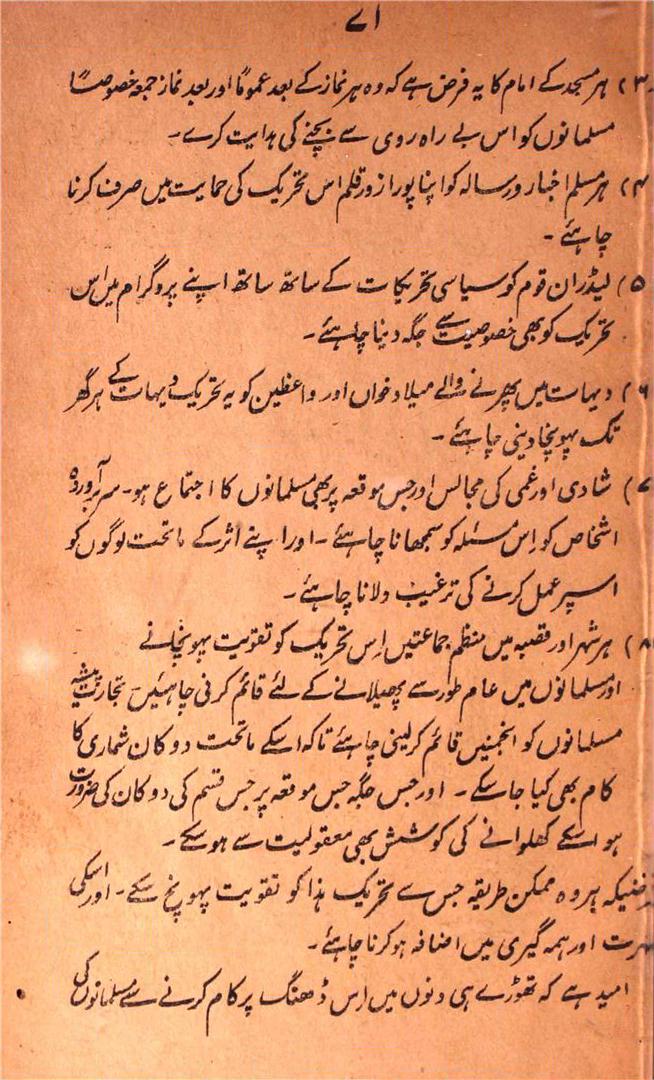 ۷۱
(۳) ہر مسجد کے امام کا یہ فرض ہے کہ وہ ہر نماز کے بعد عموماً اور بعد نماز جمعہ خصوصاً
مسلمانوں کو اس بے راہ روی سے بچنے کی ہدایت کرے۔
(۴) ہر مسلم اخبار و رسالہ کو اپنا پورا زور قلم اس تحریک کی حمایت میں صرف کرنا
چاہئے۔
(۵) لیڈران قوم کو سیاسی تحریکات کے ساتھ ساتھ اپنے پروگرام میں اس
تحریک کو بھی خصوصیت سے جگہ دینا چاہئے۔
(۶) دیہات میں پھرنے والے میلاد خواں اور واعظین کو یہ تحریک دیہات کے ہر گھر
تک پہونچا دینی چاہئے۔
(۷) شادی اور غمی کی مجالس اور جس موقعہ پر بھی مسلمانوں کا اجتماع ہو۔ سر برآوردہ
اشخاص کو اِس مسئلہ کو سمجھانا چاہئے۔ اور اپنے اثر کے ماتحت لوگوں کو
اسپر عمل کرنے کی ترغیب دلانا چاہئے۔
(۸) ہر شہر اور قصبہ میں منظم جماعتیں اِس تحریک کو تقویت پہونچانے
اور مسلمانوں میں عام طور سے پھیلانے کے لئے قائم کرنی چاہئیں تجارت پیشہ
مسلمانوں کو انجمنیں قائم کر لینی چاہئے تاکہ اسکے ماتحت دوکان شماری کا
کام بھی کیا جا سکے۔ اور جس جگہ جس موقعہ پر جس قسم کی دوکان کی ضرورت
ہو اسکے کھلوانے کی کوشش بھی معقولیت سے ہو سکے۔
غرضیکہ ہر وہ ممکن طریقہ جس سے تحریک ہذا کو تقویت پہونچ سکے۔ اور اسکی
شہرت اور ہمہ گیری میں اضافہ ہو کرنا چاہئے۔
امید ہے کہ تھوڑے ہی دنوں میں اِس ڈھنگ پر کام کرنے سے مسلمانوں کی